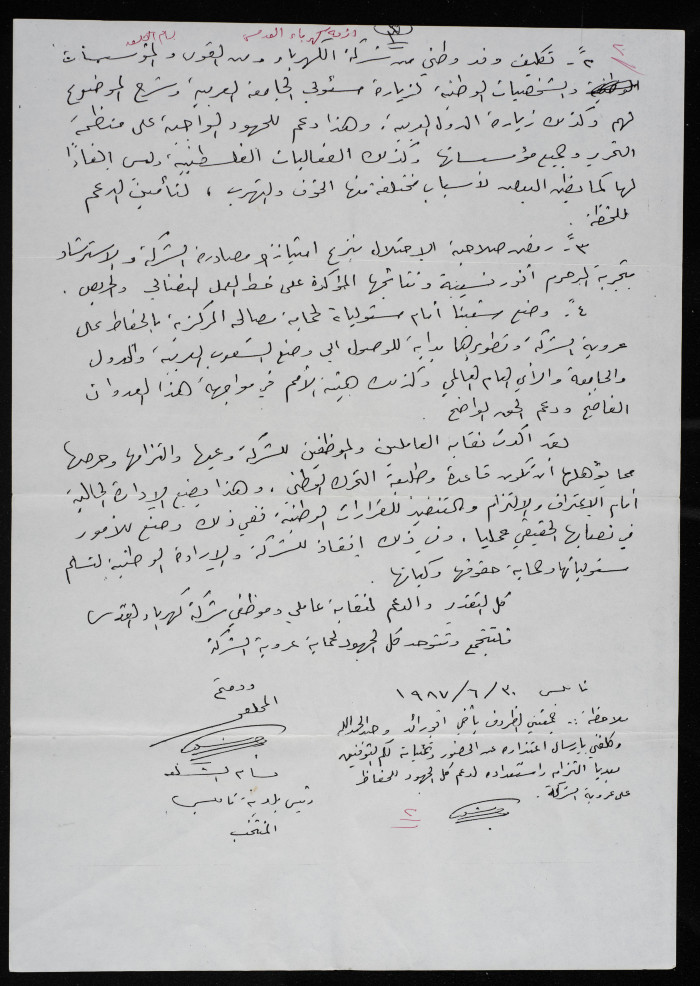 ازمة كهرباء القدس
بسام الشكعة
٢
٢ً - تكليف وفد وطني من شركة الكهرباء ومن القوى والمؤسسات
والشخصيات الوطنية لزيارة مسئولي الجامعة العربية وشرح الموضوع
لهم وكذلك زيارة الدول العربية. وهذا دعم للجهود الواجبة على منظمة
التحرير وجميع مؤسساتها وكذلك الفعاليات الفلسطينية وليس الغاءً
لها كما يظن البعض لأسباب مختلفة منها الخوف والتهرب، لتأمين الدعم
للخطة.
٣ً - رفض صلاحية الاحتلال بنزع امتياز ومصادرة الشركة والاسترشاد
بتجربة المرحوم أنور نسيبة ونتائجها المؤكدة على خط العمل النضالي والحريص.
٤ً - وضع شعبنا أمام مسئولياته لحماية مصالحه المركزية بالحفاظ على
عروبة الشركة وتطويرها بداية للوصول الى وضع الشعوب العربية والدول
والجامعة والرأي العام العالمي وكذلك هيئة الأمم في مواجهة هذا العدوان
الفاضح ودعم الحق الواضح.
لقد أكدت نقابة العاملين والموظفين للشركة وعيها والتزامها وحرصها
مما يؤهلها أن تكون قاعدة وطليعة التحرك الوطني. وهذا يضع الإدارة الحالية
أمام الاعتراف والإلتزام والتنفيذ للقرارات الوطنية ففي ذلك وضع للأمور
في نصابها الحقيقي عمليا. وفي ذلك إنقاذ للشركة والإرادة الوطنية لتسلم
مسئولياتها وحماية حقوقها وكيانها.
كل التقدير والدعم لنقابة عاملي وموظفي شركة كهرباء القدس
فلتتجمع وتتوحد كل الجهود لحماية عروبة الشركة
ودمتم
المخلص
بسام الشكعة
رئيس بلدية نابلس
المنتخب
نابلس ٣٠/٦/١٩٨٧
ملاحظة: - الظروف بأخي وحيد الحمدالله
وكلفني بإرسال اعتذاره عن الحضور وتمنياته لكم بالتوفيق
مبديا التزامه واستعداده لدعم كل الجهود للحفاظ
على عروبة الشركة.
٢